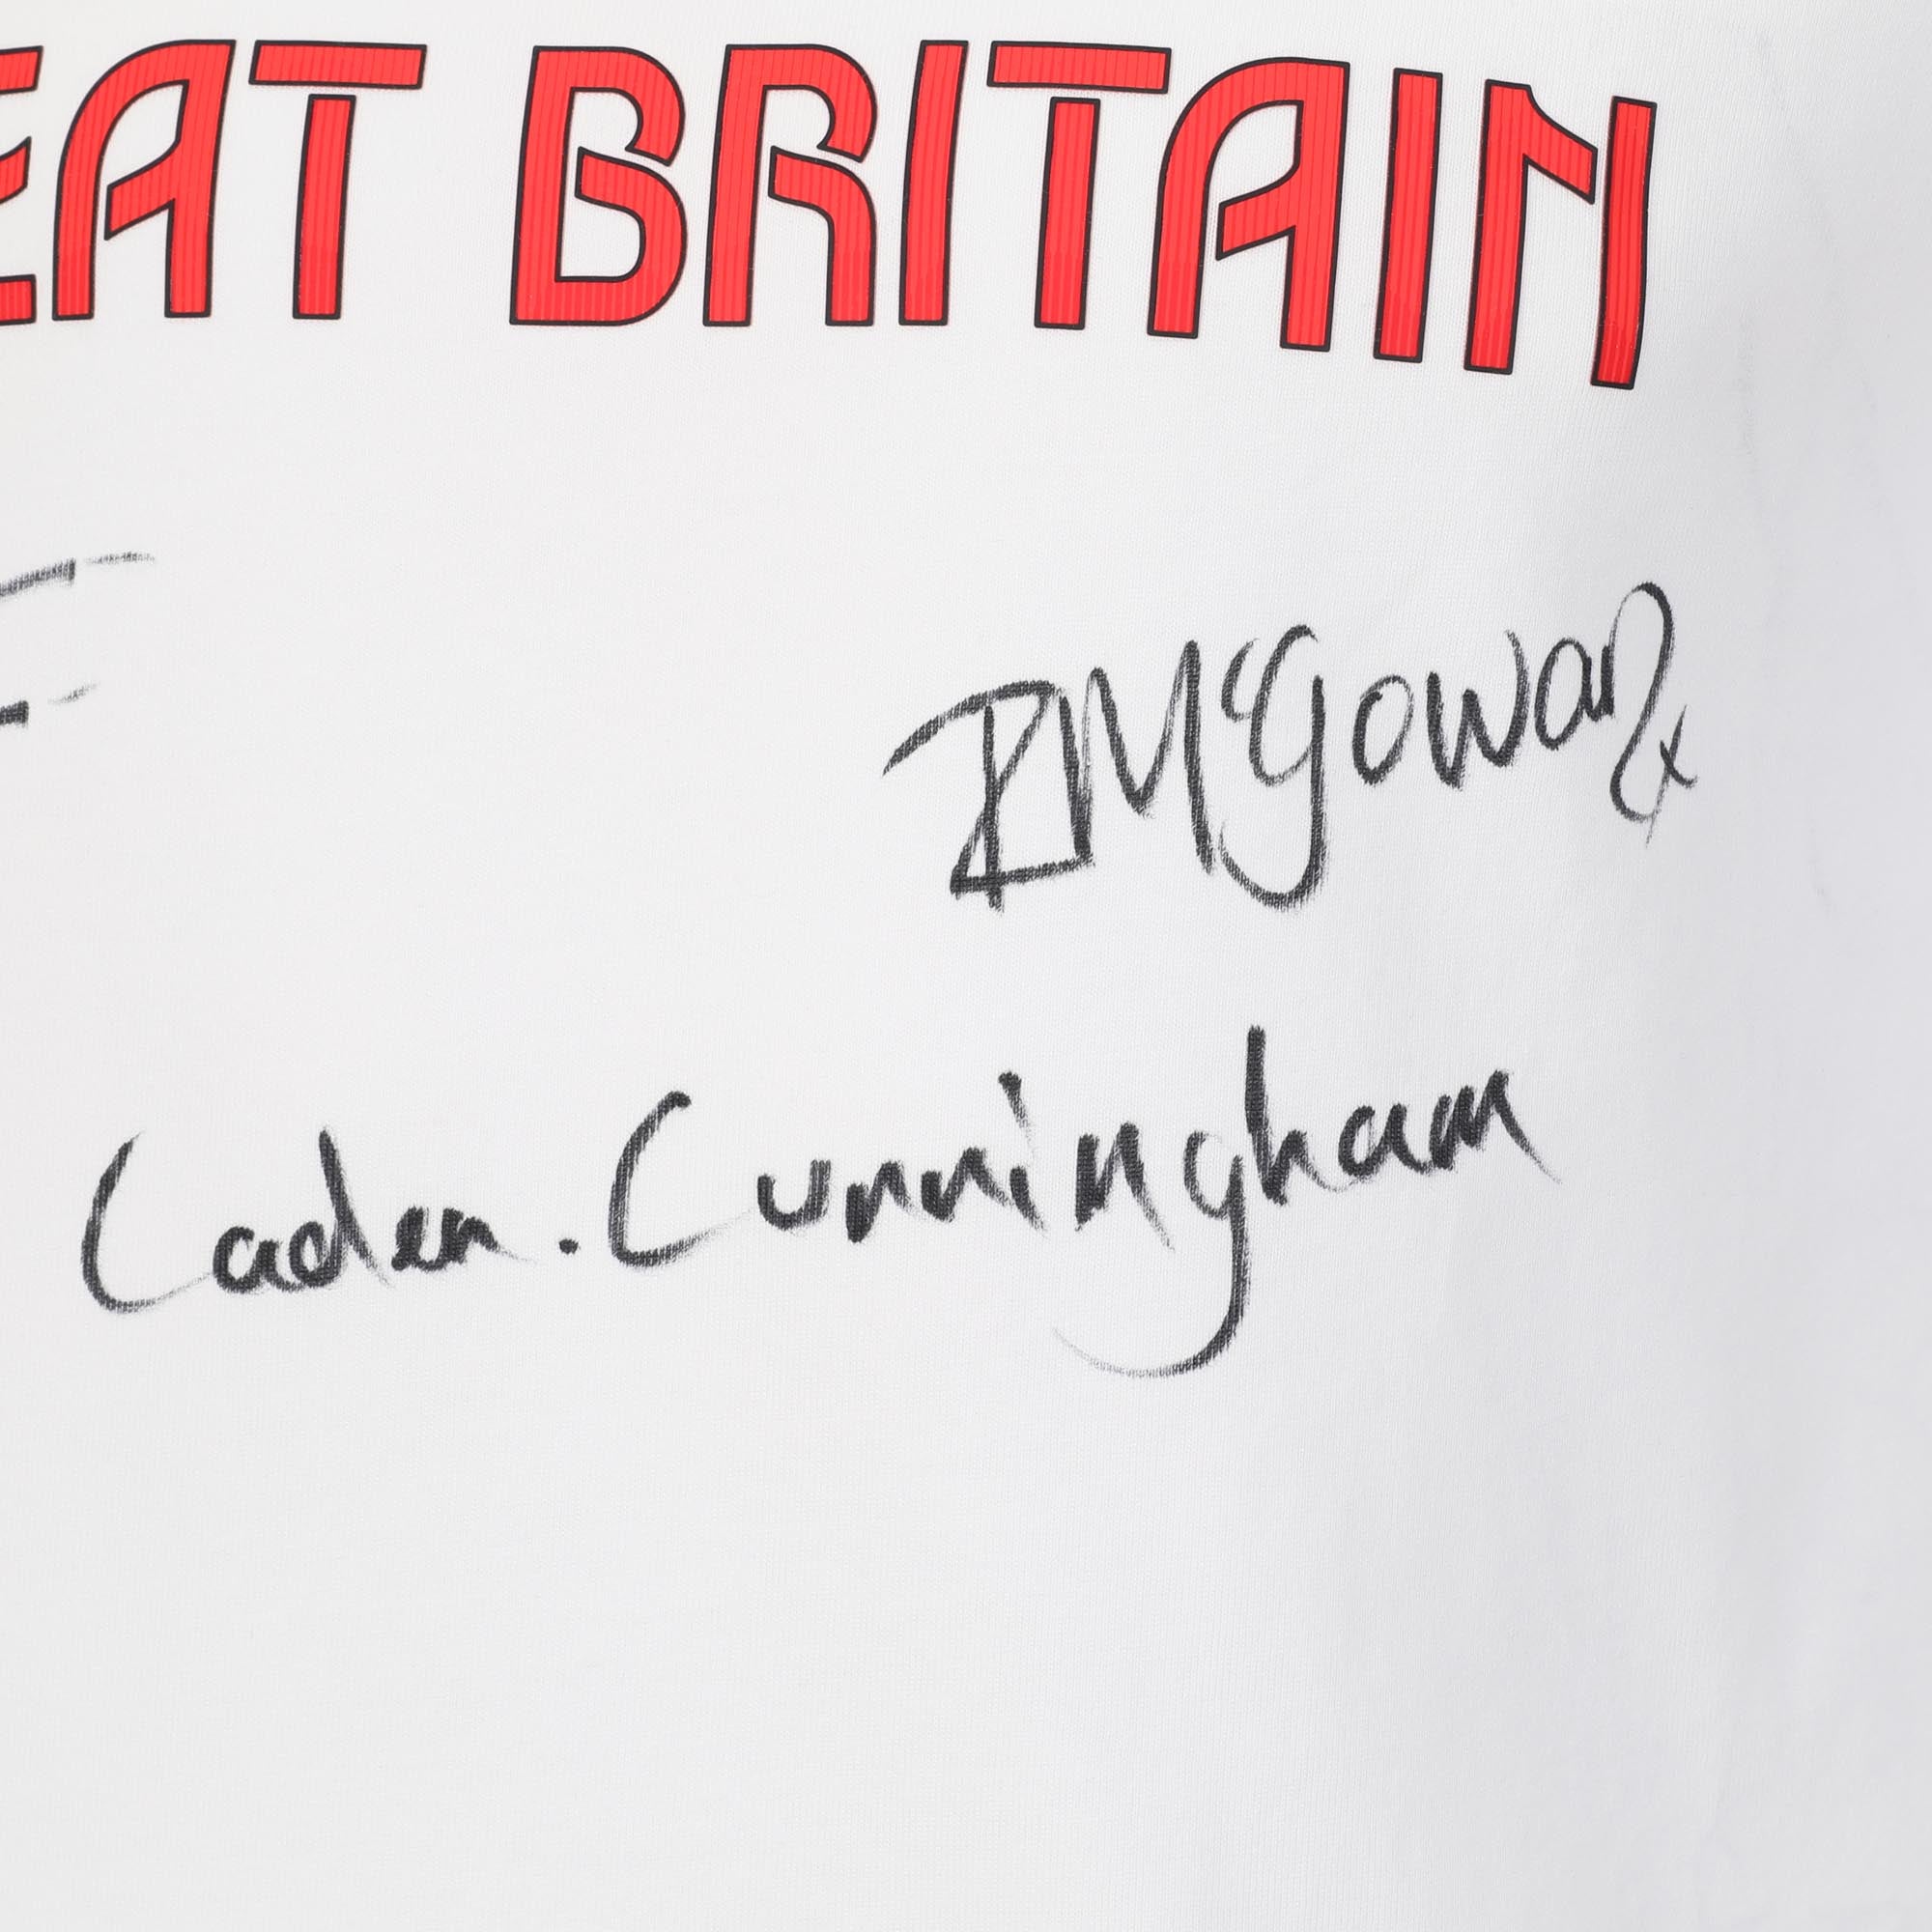 EAT BRITAIN
RMcGowan x
Caden. Cunningham